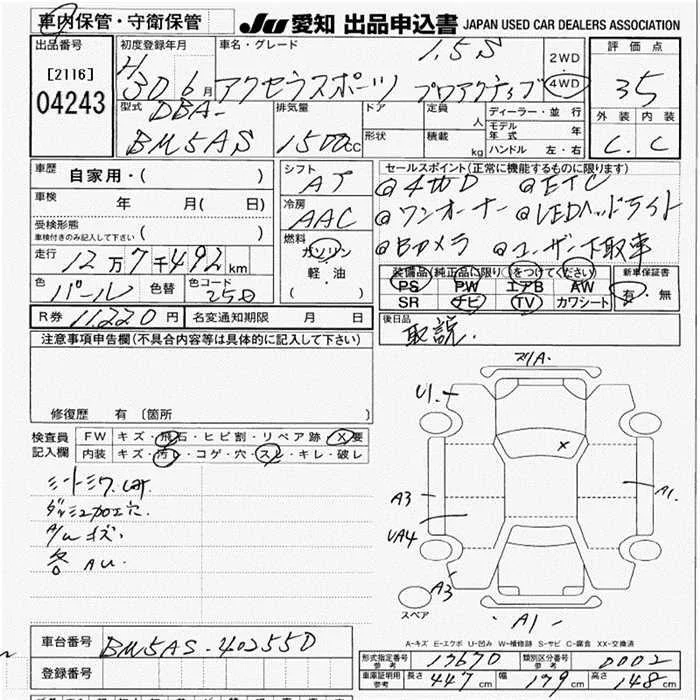 車内保管・守衛保管
JU 愛知 出品申込書 JAPAN USED CAR DEALERS ASSOCIATION
出品番号
[2116]
04243
初度登録年月
H 30 6 月
車名・グレード
1.5S
アクセラスポーツ プロアクティブ
2WD
・
4WD
評価点
3.5
外装 内装
C. C
型式
DBA-
BM5AS
排気量
1500cc
ドア
形状
定員 人
積載 kg
ディーラー・並行
モデル年式 年
ハンドル 左・右
車歴
自家用・( )
車検
年 月( 日)
受検形態
車検付きのみ記入して下さい ( )
走行
12万7千492km
色 パール 色替 色コード 25D
R券 11,220円 名変通知期限 月 日
シフト
AT
冷房
AAC
燃料
ガソリン
・
軽・油
( )
セールスポイント(正常に機能するものに限ります)
@4WD @ETC
@ワンオーナー @LEDヘッドライト
@Bカメラ @ユーザー下取車
装備品(純正品に限り○をつけてください)
PS PW エアB AW
SR ナビ TV カワシート
新車保証書
有・無
後日品
取説.
注意事項申告欄(不具合内容等は具体的に記入して下さい)
修復歴 有 (箇所 )
検査員
記入欄
FW キズ・飛石・ヒビ割・リペア跡・X要
内装 キズ・汚レ・コゲ・穴・スレ・キレ・破レ
シートシワ.
ダッシュ加工穴.
A/Wキズ.
各 AU.
A1A.
U1.
X
A3
A1.
UA4
A3
スペア
A1
A-キズ E-エクボ U-凹み W-補修跡 S-サビ C-腐食 XX-交換済
車台番号 BM5AS-402550
登録番号
形式指定番号 参考 17670 類別区分番号 参考 0002
車庫証明用 参考 長さ 447 cm 幅 179 cm 高さ 148 cm